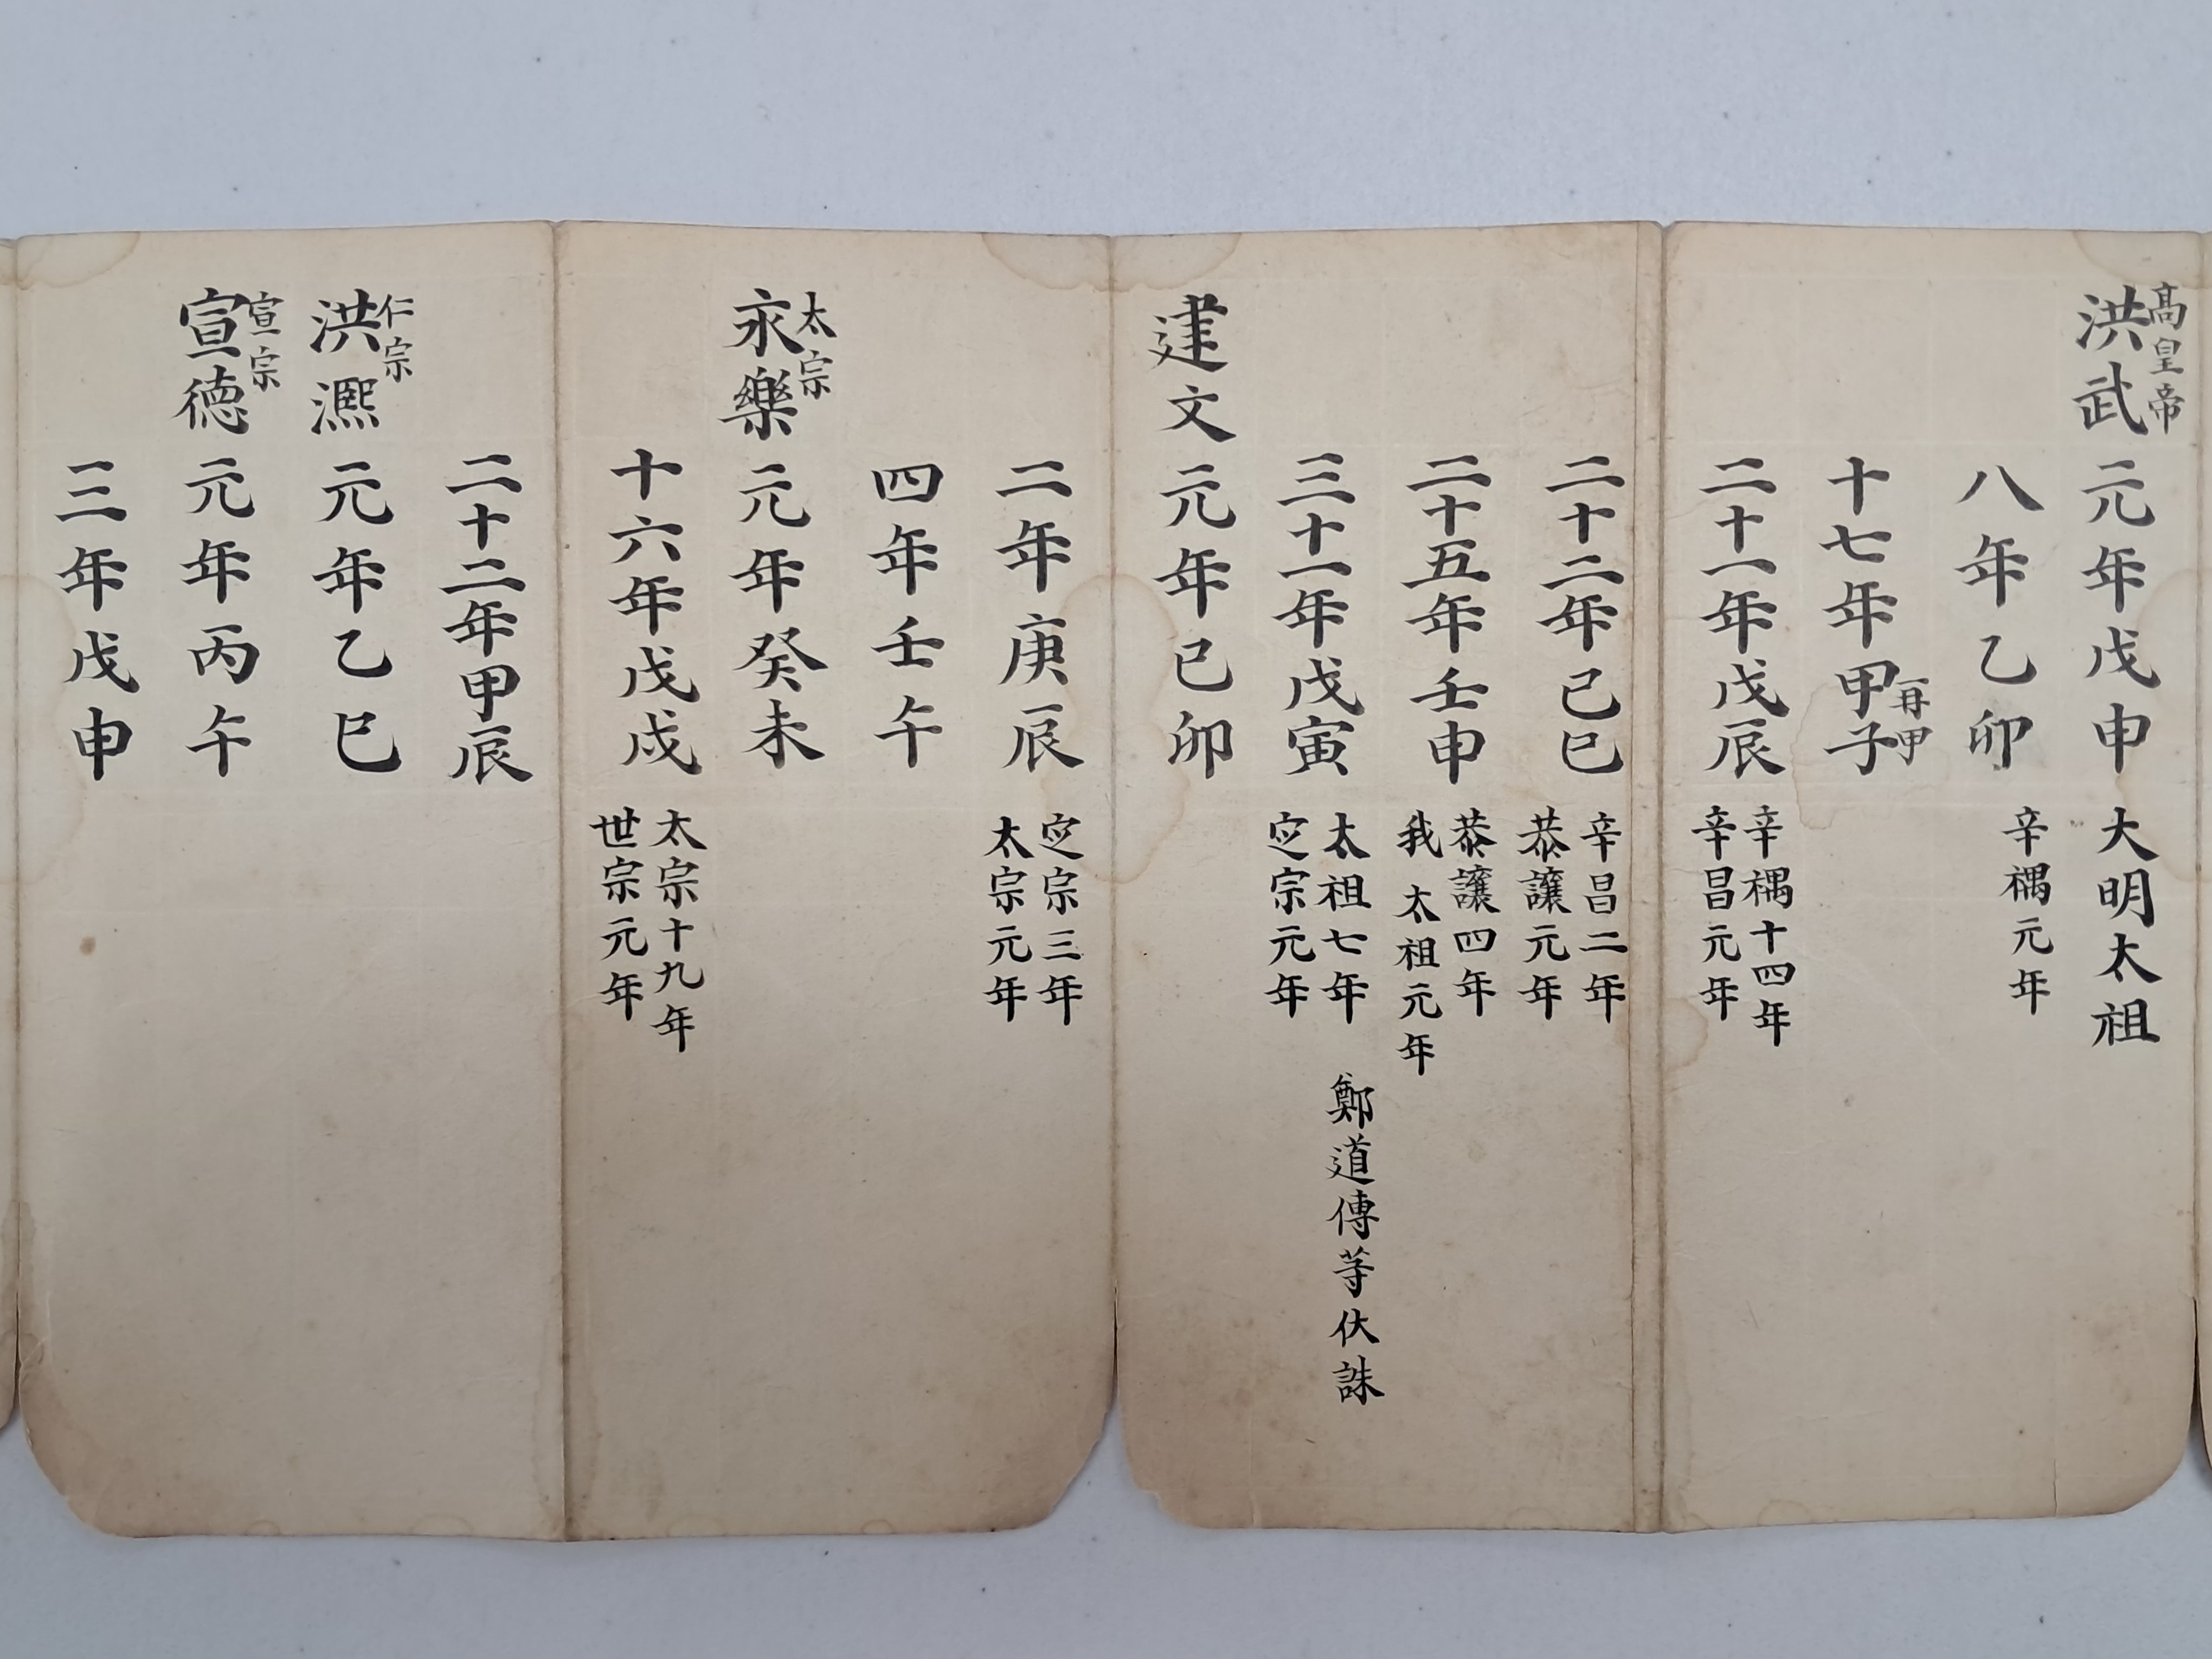 高皇帝
洪武元年戊申 大明太祖
八年乙卯 辛禑元年
再甲
十七年甲子
二十一年戊辰 辛禑十四年
辛昌元年
二十二年己巳 辛昌二年
恭讓元年
二十五年壬申 恭讓四年
我 太祖元年
三十一年戊寅 太祖七年 鄭道傳等伏誅
定宗元年
建文元年己卯
二年庚辰 定宗三年
太宗元年
四年壬午
太宗
永樂元年癸未
十六年戊戌 太宗十九年
世宗元年
二十二年甲辰
仁宗
洪熙元年乙巳
宣宗
宣德元年丙午
三年戊申